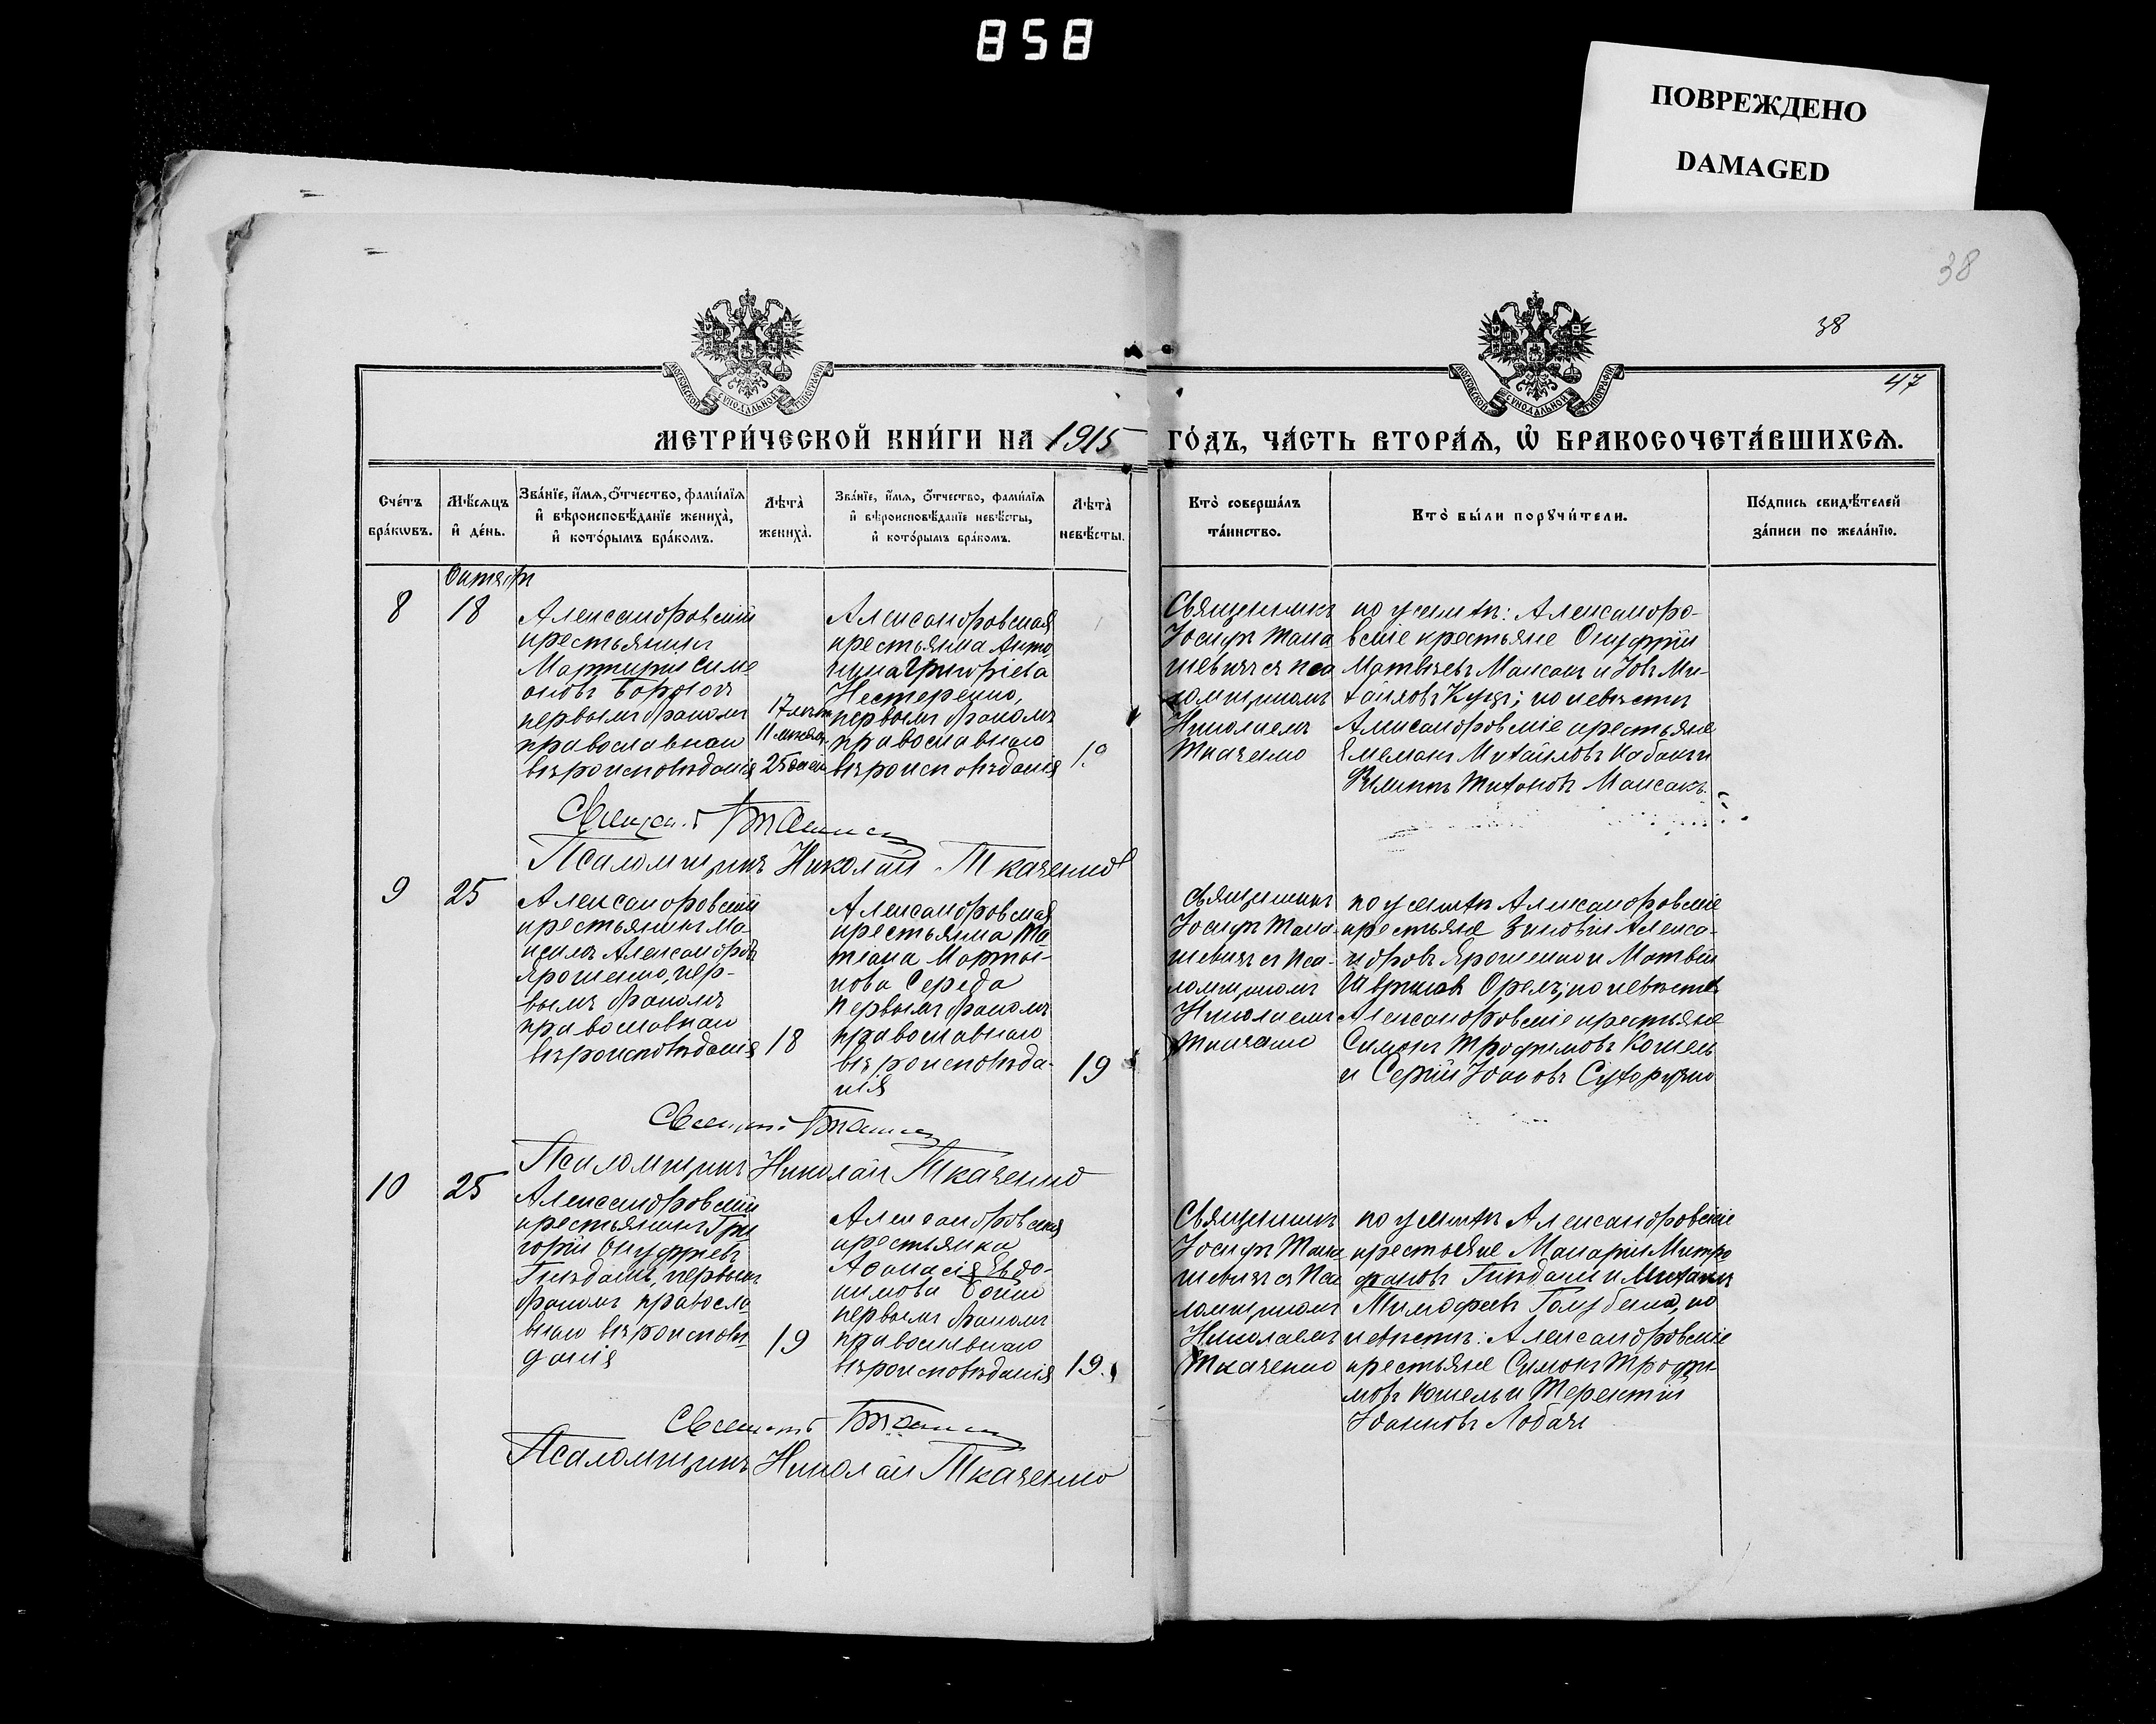 858
ПОВРЕЖДЕНО
DAMAGED
38
38
47
МЕТРИ́ЧЕСКОЙ КНИ́ГИ НА 1915
ГО́ДЪ, ЧА́СТЬ ВТОРА́Я, Ѡ҆ БРАКОСОЧЕТА́ВШИХСЯ.
Сче́тъ бра́кѡвъ.
Мѣ́сяцъ и҆ де́нь.
Зва́нїе, и҆́мя, ѻ҆́тчество, фами́лїя и҆ вѣроисповѣ́данїе жениха̀, и҆ кото́рымъ бра́комъ.
Лѣта̀ жениха̀.
Зва́нїе, и҆́мя, ѻ҆́тчество, фами́лїя и҆ вѣроисповѣ́данїе невѣ́сты, и҆ кото́рымъ бра́комъ.
Лѣта̀ невѣ́сты.
Кто̀ соверша́лъ та́инство.
Кто̀ бы́ли порꙋчи́тели.
По́дпись свидѣ́телей за́писи по жела́нїю.
8
18
Александровскій
крестьянинъ
Мартирій Симе
оновъ
первымъ бракомъ
православнаго
вѣроисповѣданія
17 лѣтъ
11 мѣсяц.
25 дней
Александровская
крестьянка Анто
нина Григоріева
Нестеренко,
первымъ бракомъ
православнаго
вѣроисповѣданія
Священникъ
Іосифъ Тана
шевичъ съ пса
ломщикомъ
Николаемъ
Ткаченко
по женихѣ: Александро-
вскіе крестьяне Онуфрій
Матвѣевъ Маисакъ и Іовъ Ми-
хайловъ Куцъ; по невѣстѣ
Александровскіе крестьяне
Емельянъ Михайловъ Кабакъ и
Тихоновъ Маисакъ.
Псаломщикъ Николай Ткаченко
9
25
Александровскій
крестьянинъ Ма
Александровъ
Ярошенко, пер-
вымъ бракомъ
православнаго
вѣроисповѣданія
18
Александровская
крестьянка Та
тіана Марты-
нова Середа
первымъ бракомъ
православнаго
вѣроисповѣда-
нія
19
Священникъ
Іосифъ Тана-
шевичъ съ пса-
ломщикомъ
Николаемъ
Ткаченко
по женихѣ Александровскіе
крестьяне Зиновій Алекса-
ндровъ Ярошенко и Матвій
Орелъ; по невѣстѣ
Александровскіе крестьяне
Симонъ Трофимовъ Кошель
и Сергій Іоановъ Сухоручко
Псаломщикъ Николай Ткаченко
10
25
Александровскій
крестьянинъ Гри
горій Онуфріевъ
первымъ
бракомъ правосла
внаго вѣроисповѣ
данія
19
Александровская
крестьянка
Аѳанасія Евдо-
кимова Бойко
первымъ бракомъ
православнаго
вѣроисповѣданія
19
Священникъ
Іосифъ Тана
шевичъ съ пса
ломщикомъ
Николаемъ
Ткаченко
по женихѣ Александровскіе
крестьяне Макарій Митро
фановъ и Михаилъ
Тимофеевъ Голубенко, по
невѣстѣ: Александровскіе
крестьяне Симонъ Трофи-
мовъ Кошель и Терентій
Іоанновъ Лобачъ
Псаломщикъ Николай Ткаченко